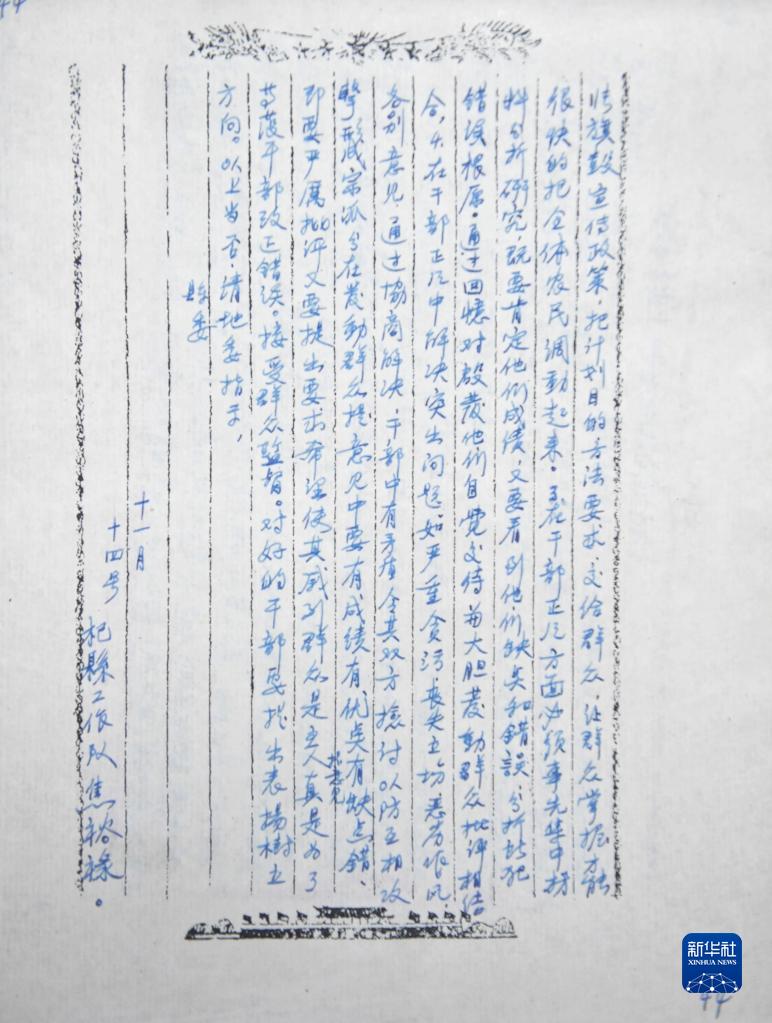 44
张旗鼓宣传政策，把计划目的方法要求，交给群众，让群众掌握，才能
很快的把全体农民调动起来。3、在干部正风方面必须事先集中材
料分析研究，既要肯定他们成绩，又要看到他们缺点和錯誤，分析其犯
错误根原。通过回憶对啟发他们自觉交待与大胆发動群众批评相结
合，4、在干部正风中解决突出问题，如严重贪污，丧失立场，恶劣作风，
各别意见，通过協商解决，干部中有矛盾令其双方檢讨以防互相攻
擊形成宗派，5、在发動群众提意见中要有成绩有优点有缺点错，
即要严厲批评又要提出要求希望使其感到群众是主人提意见真是为了
帮茂干部改正错误。接受群众监督。对好的干部要提出表揚樹立
方向。以上当否，请地委指示，
县委
十一月
十四号 杞縣工作队焦裕祿。
新华社
XINHUA NEWS
44